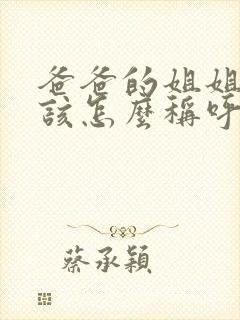 爸爸的姐姐
該怎麼稱呼
蔡承穎